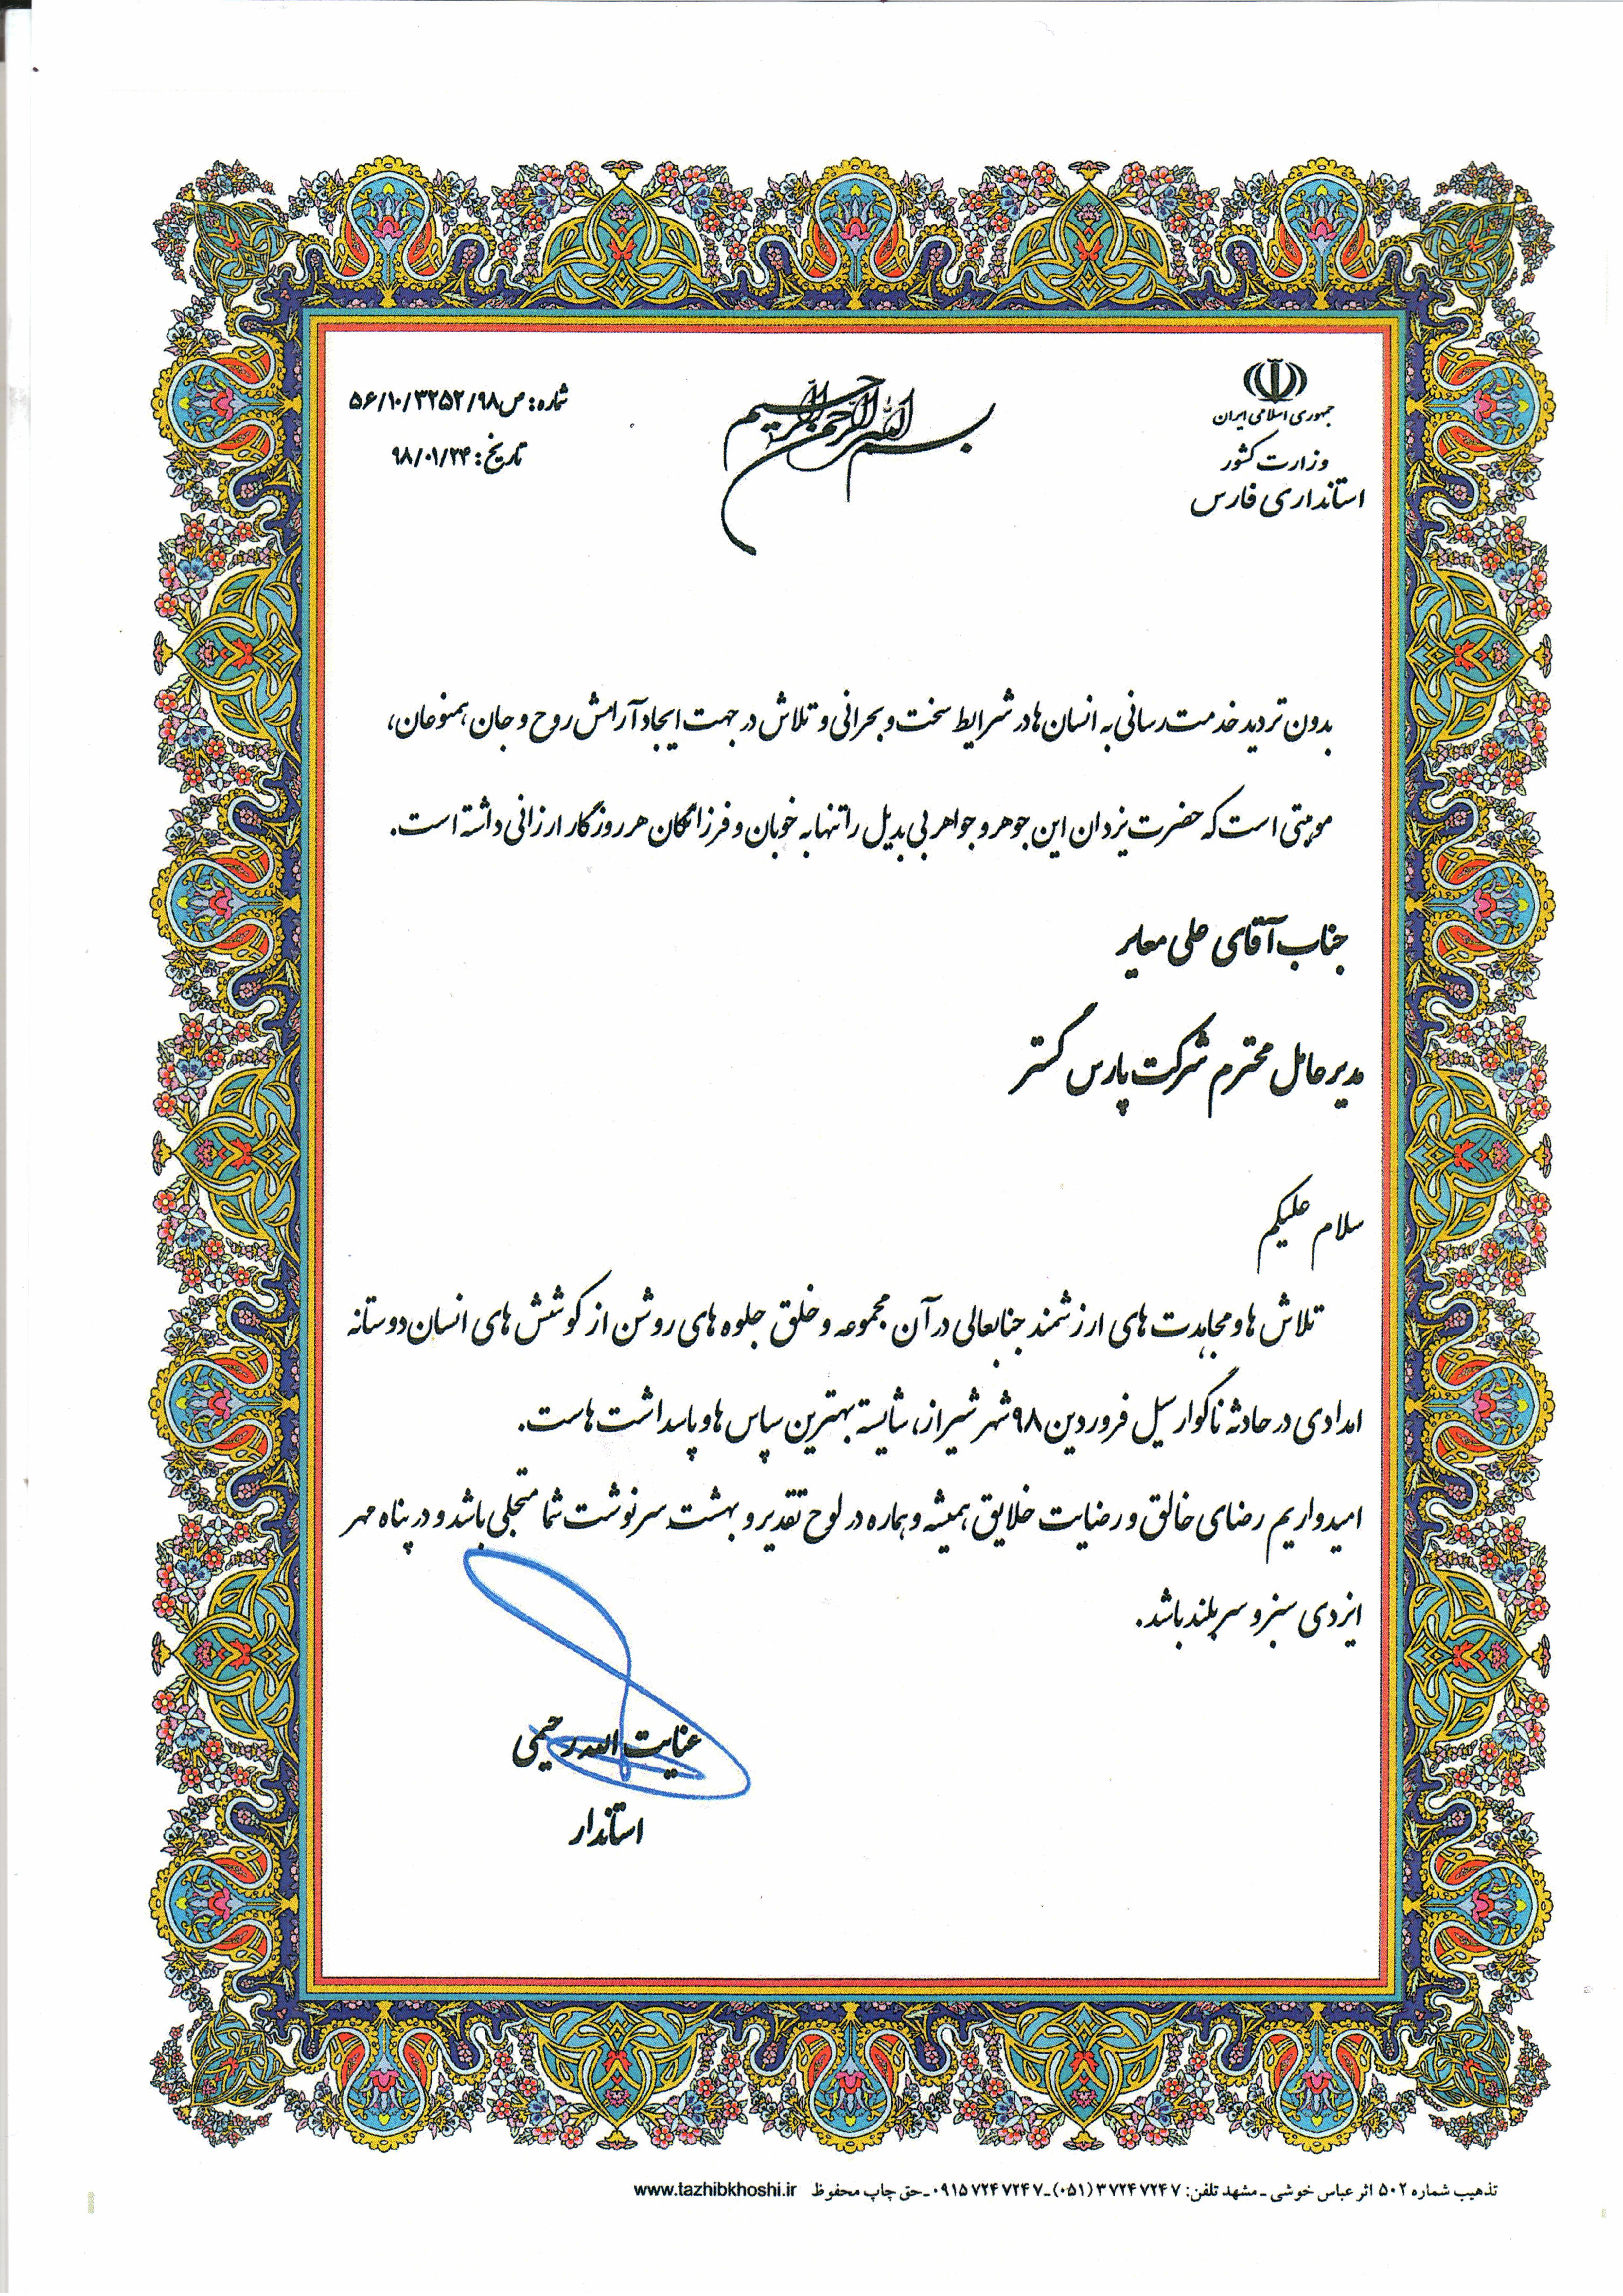 جمهوری اسلامی ایران
وزارت کشور
استانداری فارس
بسم الله الرحمن الرحیم
شماره: ص۵۶/۱۰/۳۲۵۲/۹۸
تاریخ: ۹۸/۰۱/۲۴
بدون تردید خدمت رسانی به انسان ها در شرایط سخت و بحرانی و تلاش در جهت ایجاد آرامش روح و جان همنوعان،
موهبتی است که حضرت یزدان این جوهر و جواهر بی بدیل را تنها به خوبان و فرزانگان هر روزگار ارزانی داشته است.
جناب آقای علی معایر
مدیرعامل محترم شرکت پارس گستر
سلام علیکم
تلاش ها و مجاهدت های ارزشمند جنابعالی در آن مجموعه و خلق جلوه های روشن از کوشش های انسان دوستانه
امدادی در حادثه ناگوار سیل فروردین ۹۸ شهر شیراز، شایسته بهترین سپاس ها و پاسداشت هاست.
امیدواریم رضای خالق و رضایت خلایق همیشه و هماره در لوح تقدیر و بهشت سرنوشت شما متجلی باشد و در پناه مهر
ایزدی سبز و سربلند باشد.
عنایت الله رحیمی
استاندار
تذهیب شماره ۵۰۲ اثر عباس خوشی ـ مشهد تلفن: ۳۷۲۴۷۲۴۷ (۰۵۱) ـ ۰۹۱۵۷۲۴۷۲۴۷ ـ حق چاپ محفوظ www.tazhibkhoshi.ir